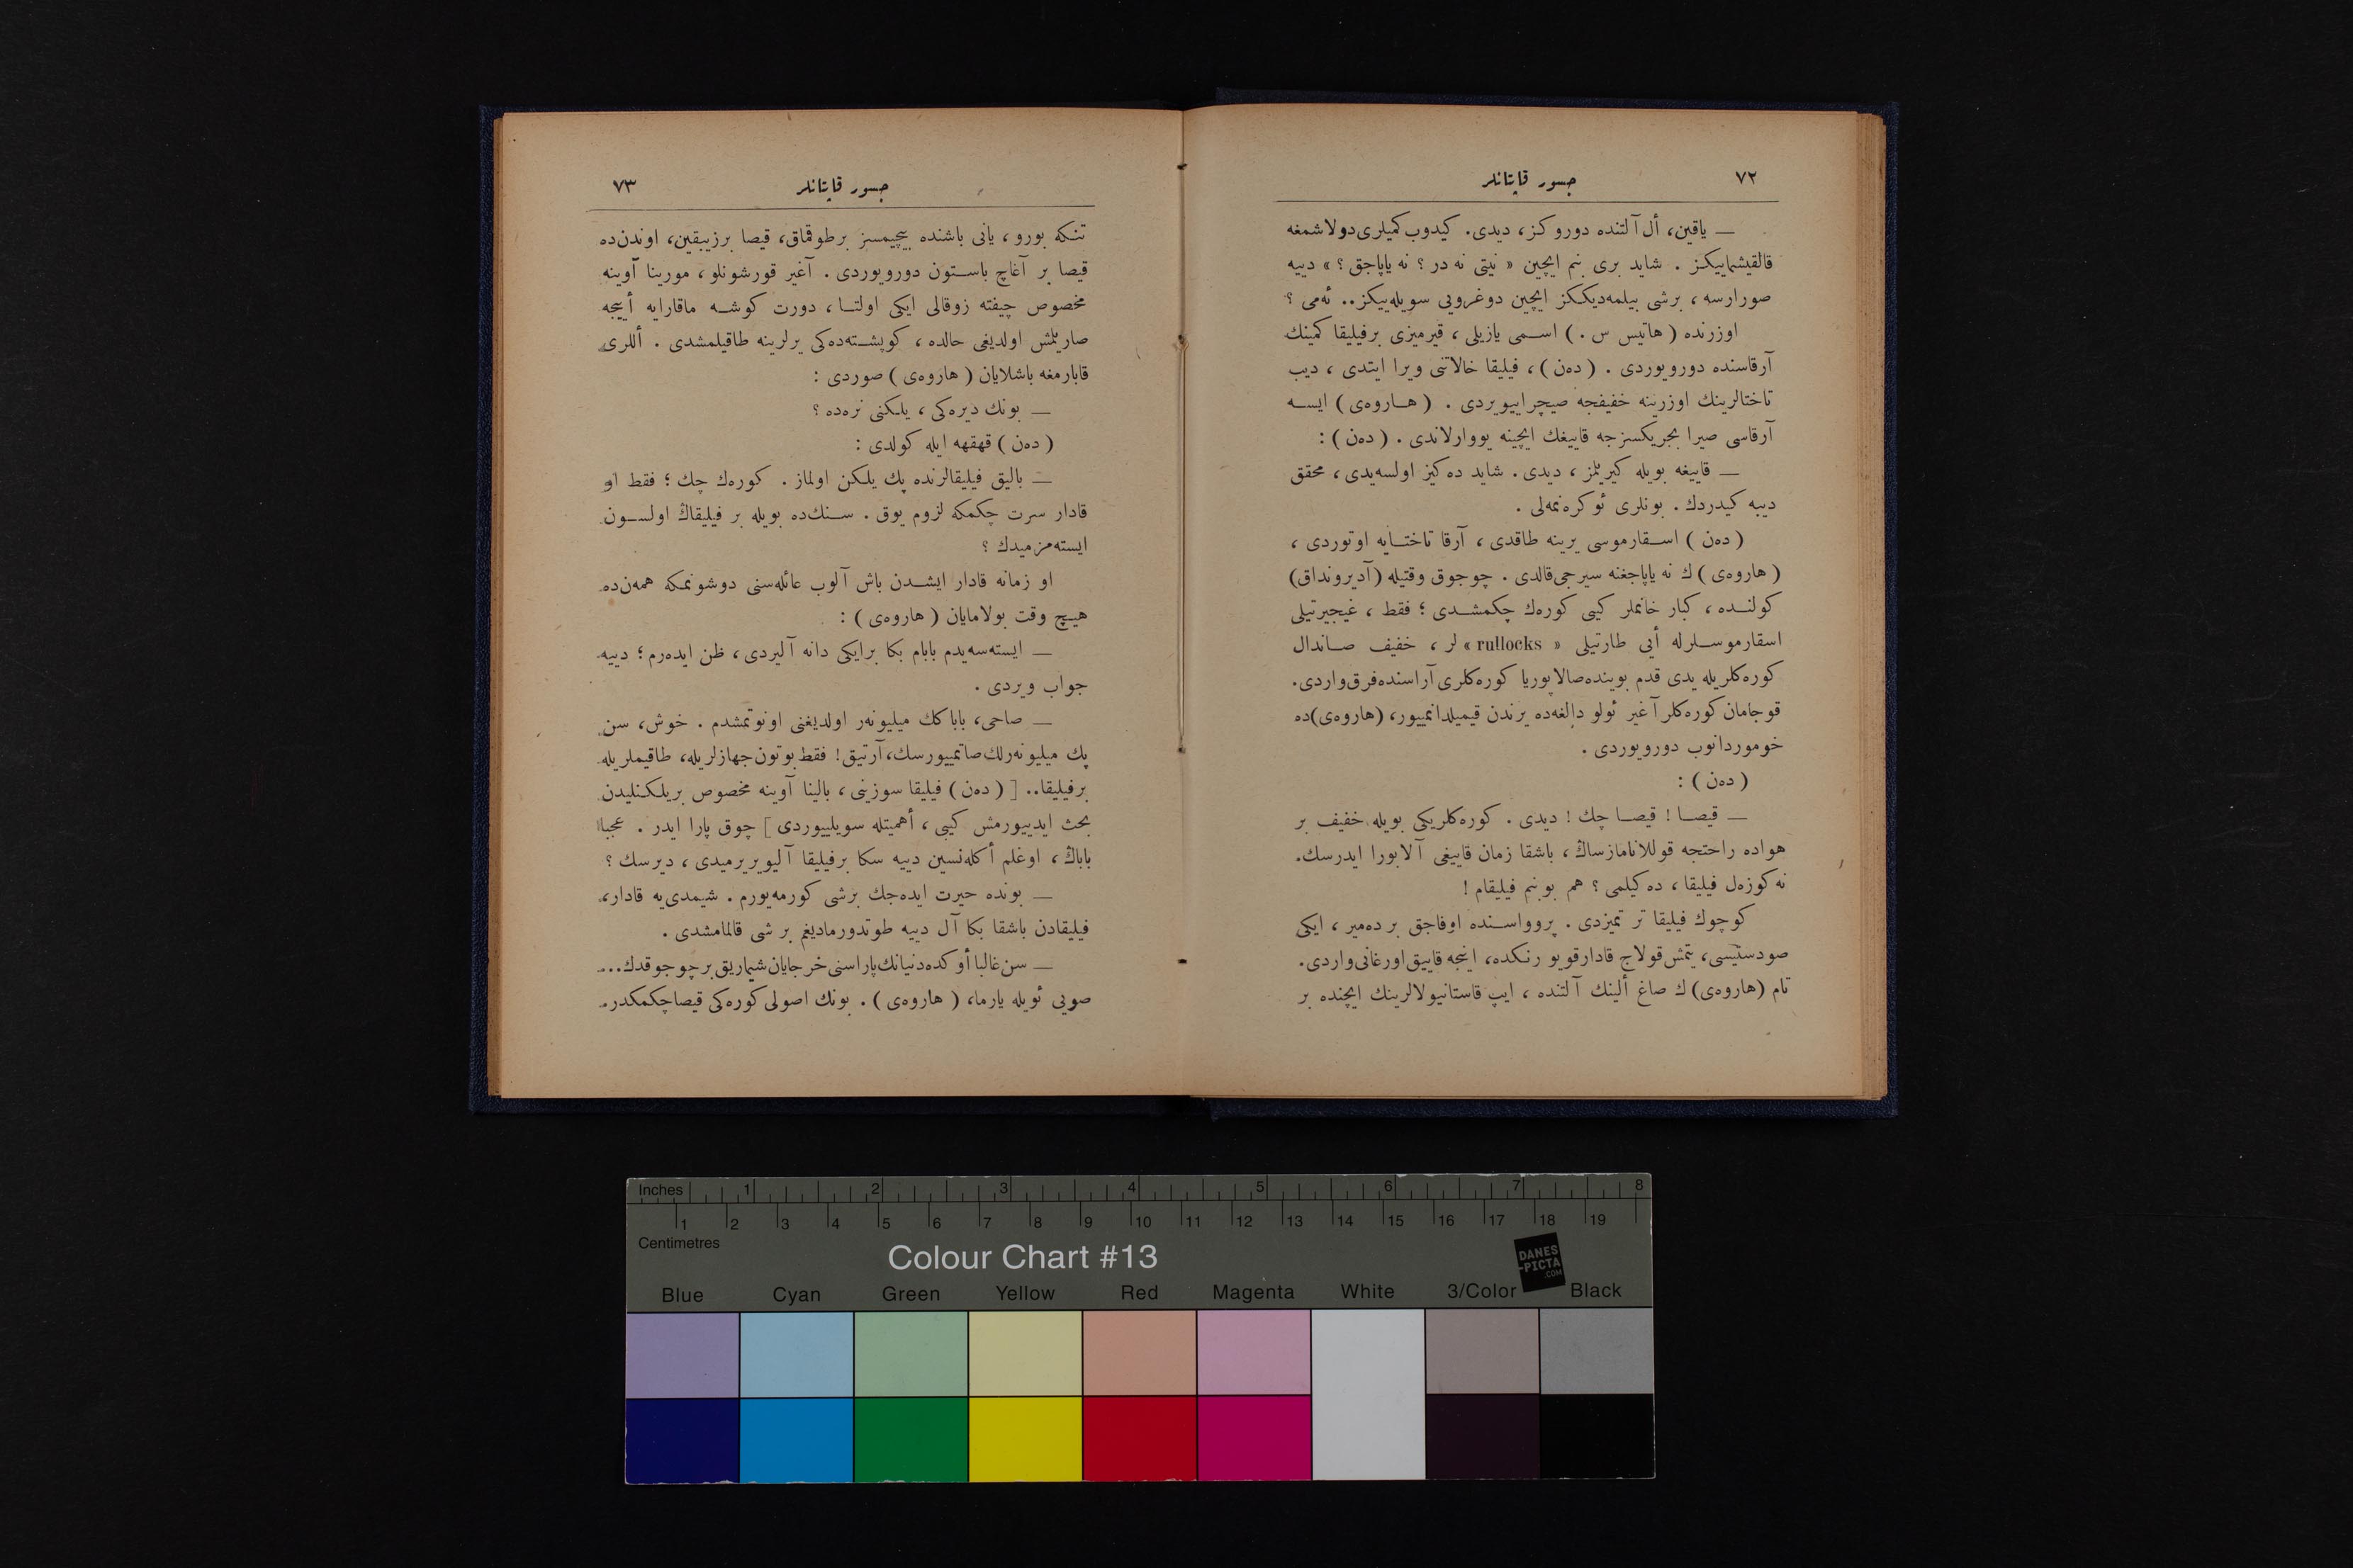 ٧٢
جسور قاپتانلر
— ياقين، أل آلتنده دوروكز، ديدى. كيدوب كميلرى دولاشمغه
قالقيشماييكز . شايد برى بنم ايچين « نيتى نه در ؟ نه ياپاجق ؟ » دييه
صورارسه ، برشى بيلمه‌ديككز ايچين دوغرويى سويله‌ييكز.. ئه‌مى ؟
اوزرنده ( هاتيس س . ) اسمى يازيلى ، قيرميزى برفيليقا كمينك
آرقاسنده دورويوردى . ( ده‌ن ) ، فيليقا خالاتنى ويرا ايتدى ، ديب
تاختالرينك اوزرينه خفيفجه صيچراييويردى . ( هاروه‌ى ) ايسه
آرقاسى صيرا بجريكسزجه قاييغك ايچينه يووارلاندى . ( ده‌ن ) :
— قاييغه بويله كيريلمز ، ديدى . شايد ده‌كيز اولسه‌يدى ، محقق
ديبه كيدردك . بونلرى ئوكره‌نمه‌لى .
( ده‌ن ) اسقارموسى يرينه طاقدى ، آرقا تاختايه اوتوردى ،
( هاروه‌ى ) ك نه ياپاجغنه سيرجى قالدى . چوجوق وقتيله (آديرونداق)
كولنده ، كبار خانملر كيبى كوره‌ك چكمشدى ؛ فقط ، غيجيرتيلى
اسقارموسلرله أيى طارتيلى « rullocks » لر ، خفيف صاندال
كوره‌كلريله يدى قدم بوينده صالاپوريا كوره‌كلرى آراسنده فرق واردى.
قوجامان كوره‌كلر آغير ئولو دالغه‌ده يرندن قيميلدانمييور، (هاروه‌ى)ده
خوموردانوب دورويوردى .
( ده‌ن ) :
— قيصا ! قيصا چك ! ديدى . كوره‌كلريكى بويله خفيف بر
هواده راحتجه قوللانامازساڭ ، باشقا زمان قاييغى آلابورا ايدرسك.
نه كوزه‌ل فيليقا ، ده‌كيلمى ؟ هم بو بنم فيليقام !
كوچوك فيليقا تر تميزدى . پروواسنده اوفاجق بر ده‌مير ، ايكى
صودستيسى، يتمش قولاج قادار قويو رنكده، اينجه قاييق اورغانى واردى.
تام (هاروه‌ى) ك صاغ ألينك آلتنده ، ايپ قاستانيولالرينك ايچنده بر
جسور قاپتانلر
٧٣
تنكه بورو ، يانى باشنده بيچيمسز برطوقماق، قيصا برزيبقين، اوندن‌ده
قيصا بر آغاچ باستون دورويوردى . آغير قورشونلو ، مورينا آوينه
مخصوص چيفته زوقالى ايكى اولتا ، دورت كوشه ماقارايه أييجه
صاريلمش اولديغى حالده ، كوپشته‌ده‌كى يرلرينه طاقيلمشدى . أللرى
قابارمغه باشلايان ( هاروه‌ى ) صوردى :
— بونك ديره‌كى ، يلكنى نره‌ده ؟
( ده‌ن ) قهقهه ايله كولدى :
— باليق فيليقالرنده پك يلكن اولماز . كوره‌ك چك ؛ فقط او
قادار سرت چكمكه لزوم يوق . سنك‌ده بويله بر فيليقاڭ اولسون
ايسته‌مزميدك ؟
او زمانه قادار ايشدن باش آلوب عائله‌سنى دوشونمكه همه‌ن‌ده
هيچ وقت بولامايان ( هاروه‌ى ) :
— ايسته‌سه‌يدم بابام بكا برايكى دانه آليردى ، ظن ايده‌رم ؛ دييه
جواب ويردى .
— صاحى، باباكك ميليونه‌ر اولديغنى اونوتمشدم . خوش، سن
پك ميليونه‌رلك صاتمييورسك، آرتيق! فقط بوتون جهازلريله، طاقيملريله
برفيليقا.. [ ( ده‌ن ) فيليقا سوزينى ، بالينا آوينه مخصوص بريلكنليدن
بحث ايدييورمش كيبى ، أهميتله سويلييوردى ] چوق پارا ايدر . عجبا
باباڭ ، اوغلم أكله‌نسين دييه سكا برفيليقا آليويريرميدى ، ديرسك ؟
— بونده حيرت ايده‌جك برشى كورمه‌يورم . شيمدى‌يه قادار،
فيليقادن باشقا بكا آل دييه طوتدورماديغم بر شى قالمامشدى .
— سن غالبا أوكده دنيانك پاراسنى خرجايان شيماريق برچوجوقدك...
صويى ئويله يارما، ( هاروه‌ى ) . بونك اصولى كوره‌كى قيصا چكمكدر.
Inches 1 2 3 4 5 6 7 8
1 2 3 4 5 6 7 8 9 10 11 12 13 14 15 16 17 18 19
Centimetres
Colour Chart #13
DANES
-PICTA
.COM
Blue Cyan Green Yellow Red Magenta White 3/Color Black